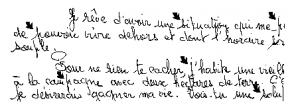 Je rêve d'avoir une situation qui me p
de pouvoir vivre dehors et dont l'horaire
souple.
Pour ne rien te cacher j'habite une vieil
à la campagne avec deux hectares de terre.
je désirerais gagner ma vie. Vois-tu une